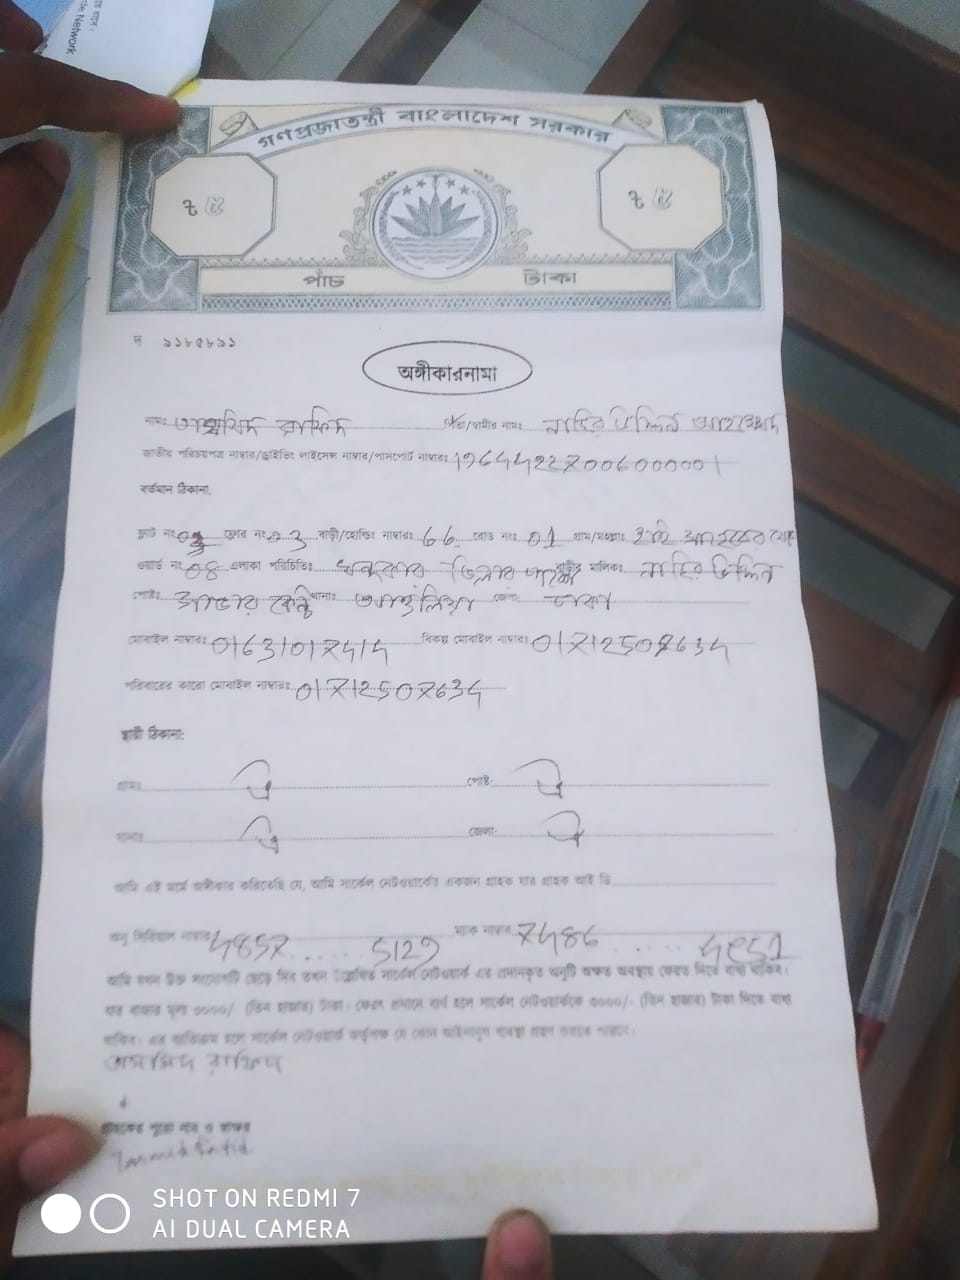 de Network
গণপ্রজাতন্ত্রী বাংলাদেশ সরকার
৳ ৫ ৳ ৫
পাঁচ টাকা
দ ৯১৮৫৮৯১
অঙ্গীকারনামা
নামঃ রাফিদ পিতা/স্বামীর নামঃ নাহির উদ্দিন আহম্মেদ
জাতীয় পরিচয়পত্র নাম্বার/ড্রাইভিং লাইসেন্স নাম্বার/পাসপোর্ট নাম্বারঃ
বর্তমান ঠিকানা:
ফ্লাট নং ফ্লোর নং 03 বাড়ী/হোল্ডিং নাম্বারঃ 66 রোড নংঃ 01 গ্রাম/মহল্লাঃ
ওয়ার্ড নং 08 এলাকা পরিচিতিঃ খন্দকার বাড়ীর মালিকঃ নাহির উদ্দিন
পোষ্টঃ থানাঃ জেলাঃ ঢাকা
মোবাইল নাম্বারঃ 01631017414 বিকল্প মোবাইল নাম্বারঃ 01712507634
পরিবারের কারো মোবাইল নাম্বারঃ 01712507634
স্থায়ী ঠিকানা:
গ্রামঃ ঐ পোষ্ট: ঐ
থানাঃ ঐ জেলা: ঐ
আমি এই মর্মে অঙ্গীকার করিতেছি যে, আমি সার্কেল নেটওয়ার্কের একজন গ্রাহক যার গ্রাহক আই ডি
অনু সিরিয়াল নাম্বার 4857 ...... 5129 ম্যাক নাম্বার 7486 ......
আমি যখন উক্ত সংযোগটি ছেড়ে দিব তখন উল্লেখিত সার্কেল নেটওয়ার্ক এর প্রদানকৃত অনুটি অক্ষত অবস্থায় ফেরত দিতে বাধ্য থাকিব।
যার বাজার মূল্য ৩০০০/- (তিন হাজার) টাকা। ফেরৎ প্রদানে ব্যর্থ হলে সার্কেল নেটওয়ার্ককে ৩০০০/- (তিন হাজার) টাকা দিতে বাধ্য
থাকিব। এর ব্যতিক্রম হলে সার্কেল নেটওয়ার্ক কর্তৃপক্ষ যে কোন আইনানুগ ব্যবস্থা গ্রহণ করতে পারবে।
রাফিদ
গ্রাহকের পুরো নাম ও স্বাক্ষর
SHOT ON REDMI 7
AI DUAL CAMERA